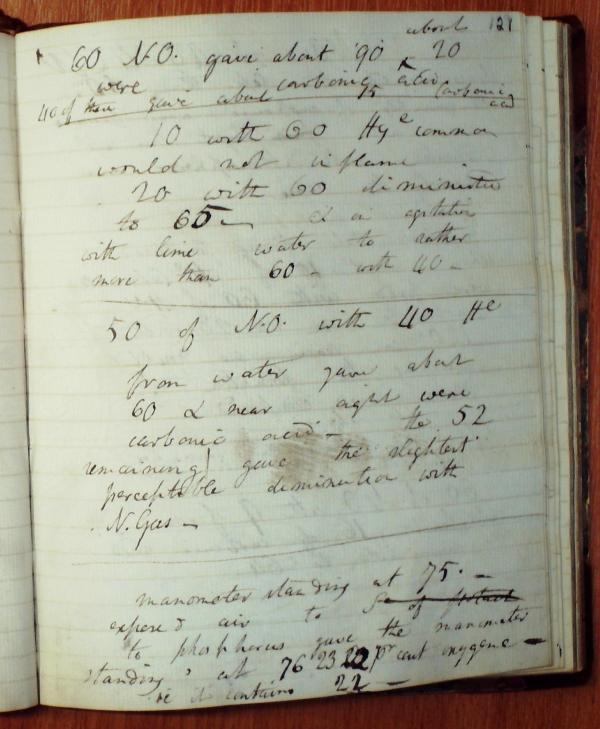 121
60 N.O. gave about 90 about 20
were carbonic acid
40 of them gave about 75 carbonic acid
10 with 60 Hye common
would not inflame
20 with 60 diminished
to 65 — & on agitation
with lime water to rather
more than 60 – with 40 –
50 of N.O. with 40 He
from water gave about
60 & near eight were
carbonic acid – the 52
remaining gave the slightest
perceptible diminution with
N. Gas –
manometer standing at 75. –
exposed air to
to phosphorus gave the manometer
standing at 76 23 22 pr cent oxygene –
ie it contains 22 –